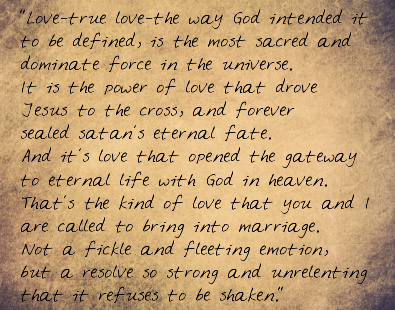 "Love-true love-the way God intended it
to be defined, is the most sacred and
dominate force in the universe.
It is the power of love that drove
Jesus to the cross, and forever
sealed satan's eternal fate.
And it's love that opened the gateway
to eternal life with God in heaven.
That's the kind of love that you and I
are called to bring into marriage.
Not a fickle and fleeting emotion,
but a resolve so strong and unrelenting
that it refuses to be shaken."